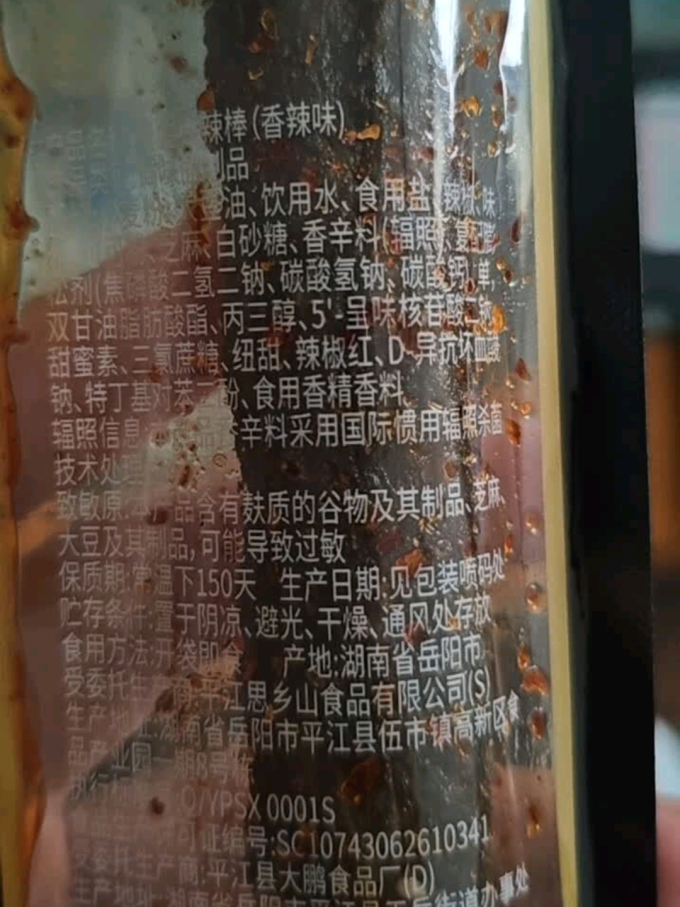 辣棒(香辣味)
制品
油、饮用水、食用盐、辣椒、味
芝麻、白砂糖、香辛料(辐照)、复配膨
松剂(焦磷酸二氢二钠、碳酸氢钠、碳酸钙)、单,
双甘油脂肪酸酯、丙三醇、5'-呈味核苷酸二钠、
甜蜜素、三氯蔗糖、纽甜、辣椒红、D-异抗坏血酸
钠、特丁基对苯二酚、食用香精香料
辐照信息 品 辛料采用国际惯用辐照杀菌
技术处理
致敏原: 品含有麸质的谷物及其制品、芝麻、
大豆及其制品,可能导致过敏
保质期:常温下150天 生产日期:见包装喷码处
贮存条件:置于阴凉、避光、干燥、通风处存放
食用方法:开袋即食 产地:湖南省岳阳市
受委托生产商:平江思乡山食品有限公司(S)
生产地址:湖南省岳阳市平江县伍市镇高新区食
品产业园一期8号栋
执行标准 Q/YPSX 0001S
许可证编号:SC10743062610341
受委托生产商:平江县大鹏食品厂(D)
生产地址:湖南省岳阳市平江县 街道办事处